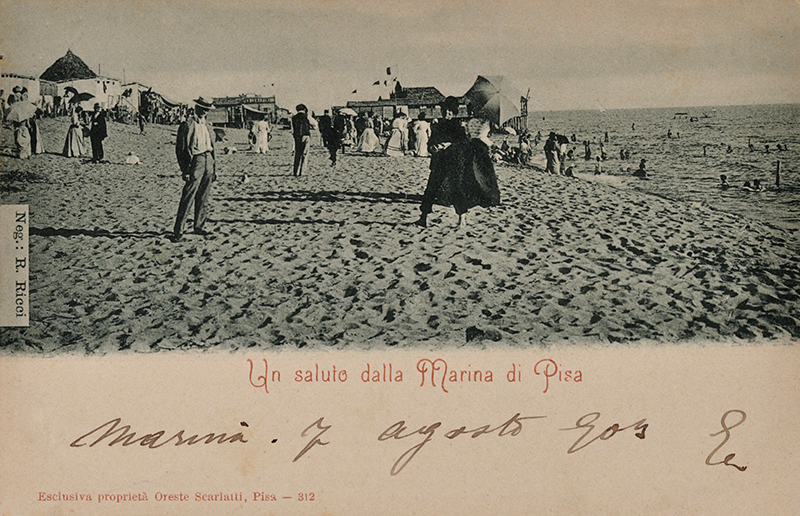 Neg: R. Ricci
Un saluto dalla Marina di Pisa
Marina . 7 agosto 903
Esclusiva proprietà Oreste Scarlatti, Pisa — 312